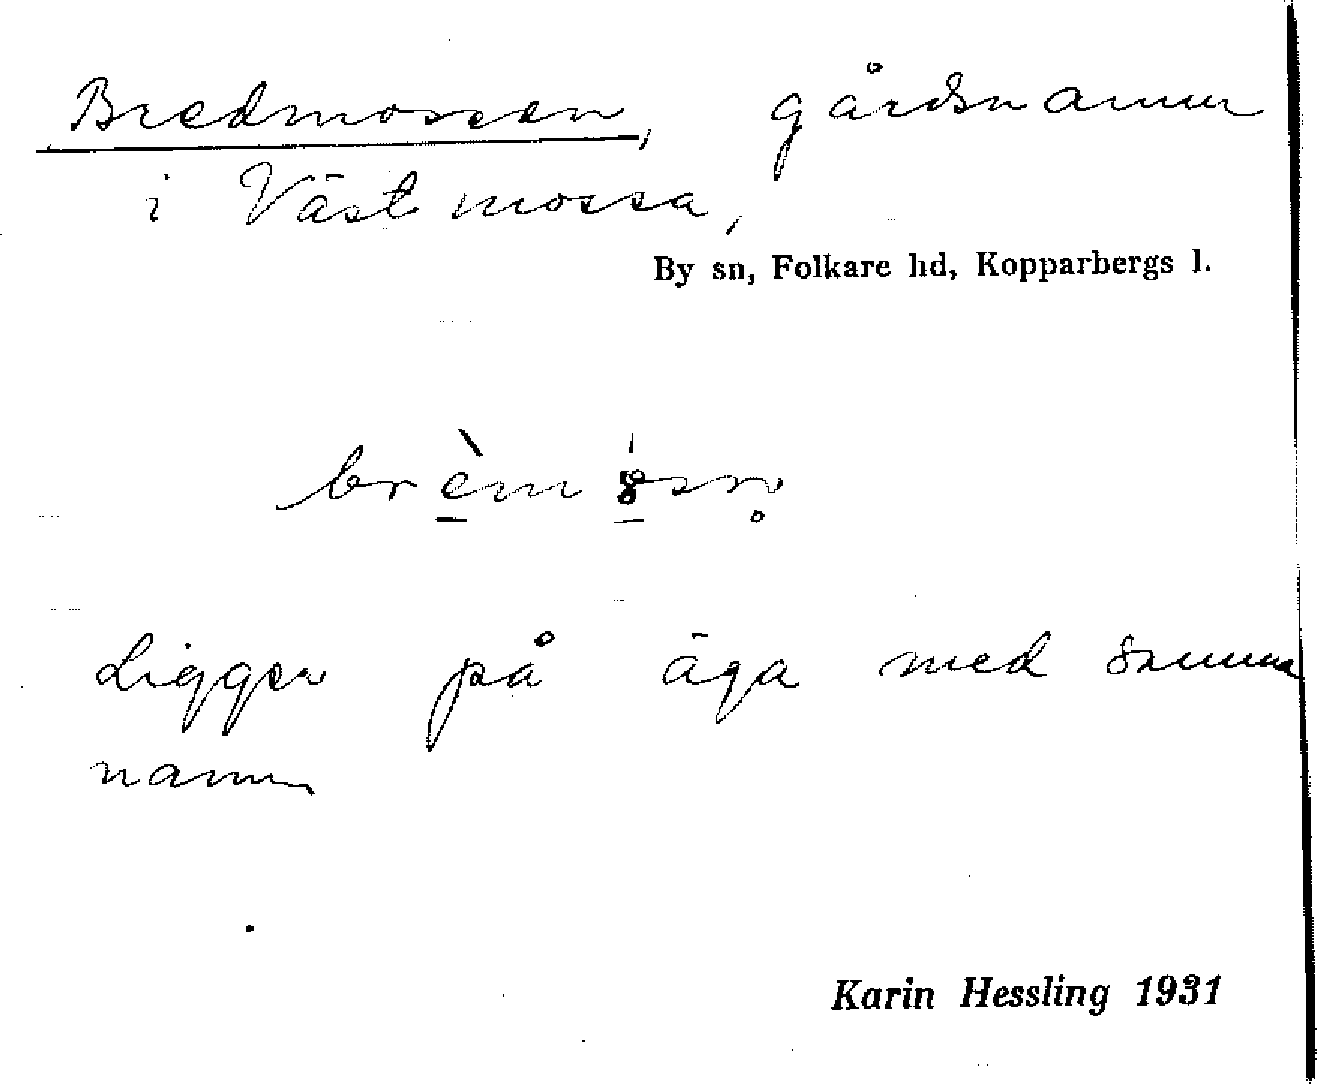 Bredmossen, gårdsnamn
i Västmossa,
By sn, Folkare hd, Kopparbergs l.
Ligger på äga med samma
namn
Karin Hessling 1931